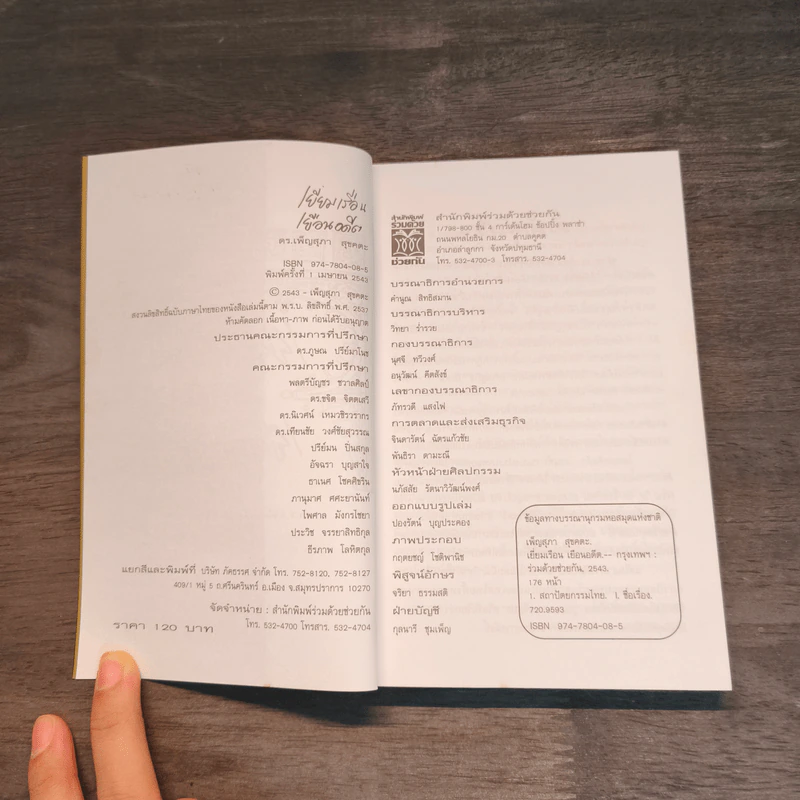 เยี่ยมเรือน
เยือนอดีต
ดร.เพ็ญสุภา สุขคตะ
ISBN 974-7804-08-5
พิมพ์ครั้งที่ 1 เมษายน 2543
© 2543 - เพ็ญสุภา สุขคตะ
สงวนลิขสิทธิ์ฉบับภาษาไทยของหนังสือเล่มนี้ตาม พ.ร.บ. ลิขสิทธิ์ พ.ศ. 2537
ห้ามคัดลอก เนื้อหา-ภาพ ก่อนได้รับอนุญาต
ประธานคณะกรรมการที่ปรึกษา
ดร.ภูษณ ปรีย์มาโนช
คณะกรรมการที่ปรึกษา
พลตรีบัญชร ชวาลศิลป์
ดร.ชจิต จิตตเสวี
ดร.นิเวศน์ เหมวชิรวรากร
ดร.เทียนชัย วงศ์ชัยสุวรรณ
ปรีย์มน ปิ่นสกุล
อัจฉรา บุญสาใจ
ธาเนศ โชคศิขริน
ภานุมาศ ศศะยานันท์
ไพศาล มังกรไชยา
ประวิช จรรยาสิทธิกุล
ธีรภาพ โลหิตกุล
แยกสีและพิมพ์ที่ บริษัท ภัคธรรศ จำกัด โทร. 752-8120, 752-8127
409/1 หมู่ 5 ถ.ศรีนครินทร์ อ.เมือง จ.สมุทรปราการ 10270
จัดจำหน่าย : สำนักพิมพ์ร่วมด้วยช่วยกัน
โทร. 532-4700 โทรสาร. 532-4704
ราคา 120 บาท
สำนักพิมพ์
ร่วมด้วย
ช่วยกัน
สำนักพิมพ์ร่วมด้วยช่วยกัน
1/798-800 ชั้น 4 การ์เด้นโฮม ช้อปปิ้ง พลาซ่า
ถนนพหลโยธิน กม.20 ตำบลคูคต
อำเภอลำลูกกา จังหวัดปทุมธานี
โทร. 532-4700-3 โทรสาร. 532-4704
บรรณาธิการอำนวยการ
คำนูณ สิทธิสมาน
บรรณาธิการบริหาร
วิทยา ร่ำรวย
กองบรรณาธิการ
นุศจี ทวีวงศ์
อนุวัฒน์ คิดสังข์
เลขากองบรรณาธิการ
ภัทรวดี แสงไฟ
การตลาดและส่งเสริมธุรกิจ
จินดารัตน์ ฉัตรแก้วชัย
พันธิรา ดามะณี
หัวหน้าฝ่ายศิลปกรรม
นภัสสัย รัตนาวิวัฒน์พงศ์
ออกแบบรูปเล่ม
ปองรัตน์ บุญประคอง
ภาพประกอบ
กฤตยชญ์ โชติพานิช
พิสูจน์อักษร
จริยา ธรรมสติ
ฝ่ายบัญชี
กุลนารี ชุมเพ็ญ
ข้อมูลทางบรรณานุกรมหอสมุดแห่งชาติ
เพ็ญสุภา สุขคตะ.
เยี่ยมเรือน เยือนอดีต.-- กรุงเทพฯ :
ร่วมด้วยช่วยกัน, 2543.
176 หน้า
1. สถาปัตยกรรมไทย. I. ชื่อเรื่อง.
720.9593
ISBN 974-7804-08-5.